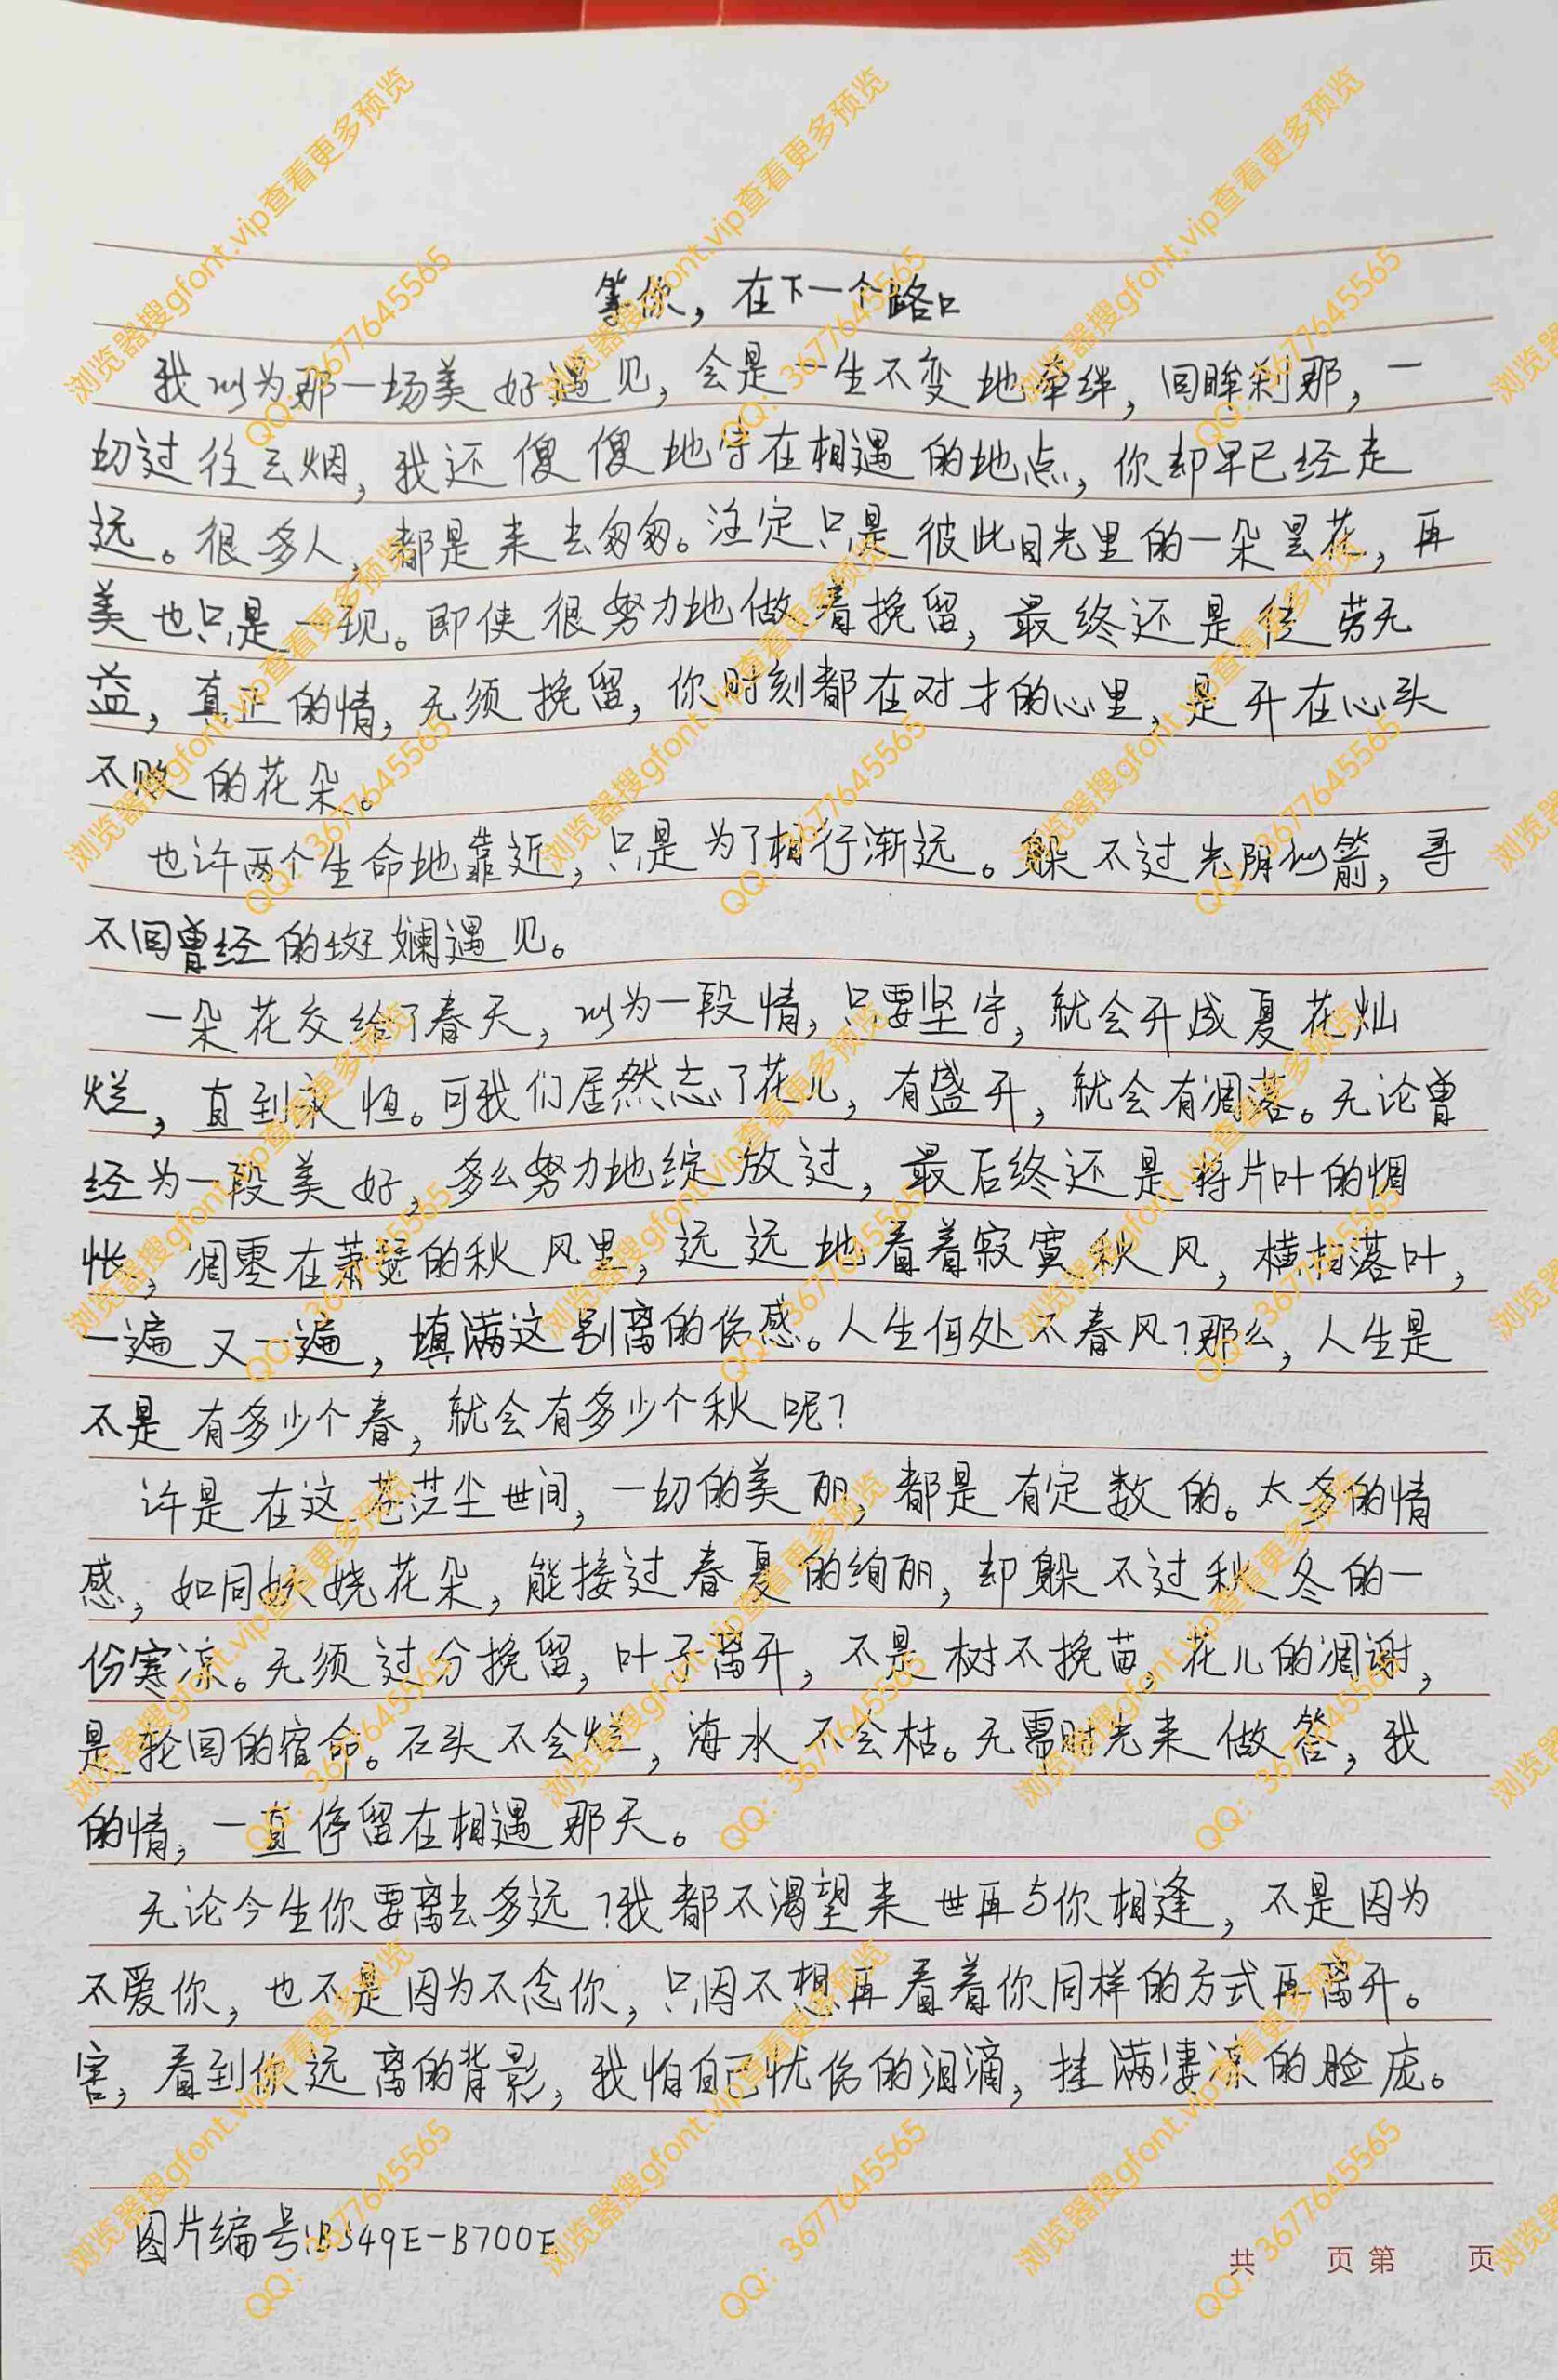 等你，在下一个路口
我以为那一场美好遇见，会是一生不变地牵绊，回眸刹那，一
切过往云烟，我还傻傻地守在相遇的地点，你却早已经走
远。很多人，都是来去匆匆。注定只是彼此目光里的一朵昙花，再
美也只是一现。即使很努力地做着挽留，最终还是徒劳无
益，真正的情，无须挽留，你时刻都在对才的心里，是开在心头
不败的花朵。
也许两个生命地靠近，只是为了相行渐远。躲不过光阴似箭，寻
不回曾经的斑斓遇见。
一朵花交给了春天，以为一段情，只要坚守，就会开成夏花灿
烂，直到永恒。可我们居然忘了花儿，有盛开，就会有凋落。无论曾
经为一段美好，多么努力地绽放过，最后终还是将片叶的惆
怅，凋零在萧瑟的秋风里，远远地看着寂寞秋风，横扫落叶，
一遍又一遍，填满这别离的伤感。人生何处不春风？那么，人生是
不是有多少个春，就会有多少个秋呢？
许是在这苍茫尘世间，一切的美丽，都是有定数的。太多的情
感，如同妖娆花朵，能接过春夏的绚丽，却躲不过秋冬的一
份寒凉。无须过分挽留，叶子离开，不是树不挽苗，花儿的凋谢，
是轮回的宿命。石头不会烂，海水不会枯。无需时光来做答，我
的情，一直停留在相遇那天。
无论今生你要离去多远？我都不渴望来世再与你相逢，不是因为
不爱你，也不是因为不念你，只因不想再看着你同样的方式再离开。
害，看到你远离的背影，我怕自己忧伤的泪滴，挂满凄凉的脸庞。
图片编号:B549E-B700E
共 页 第 页
浏览器搜gfont.vip查看更多预览
QQ：3677645565